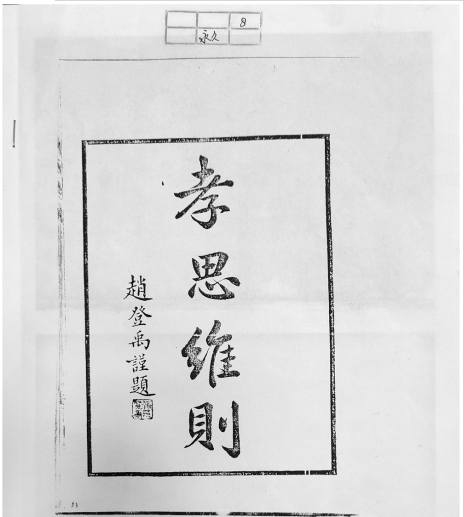 8
永久
孝思維則
趙登禹謹題